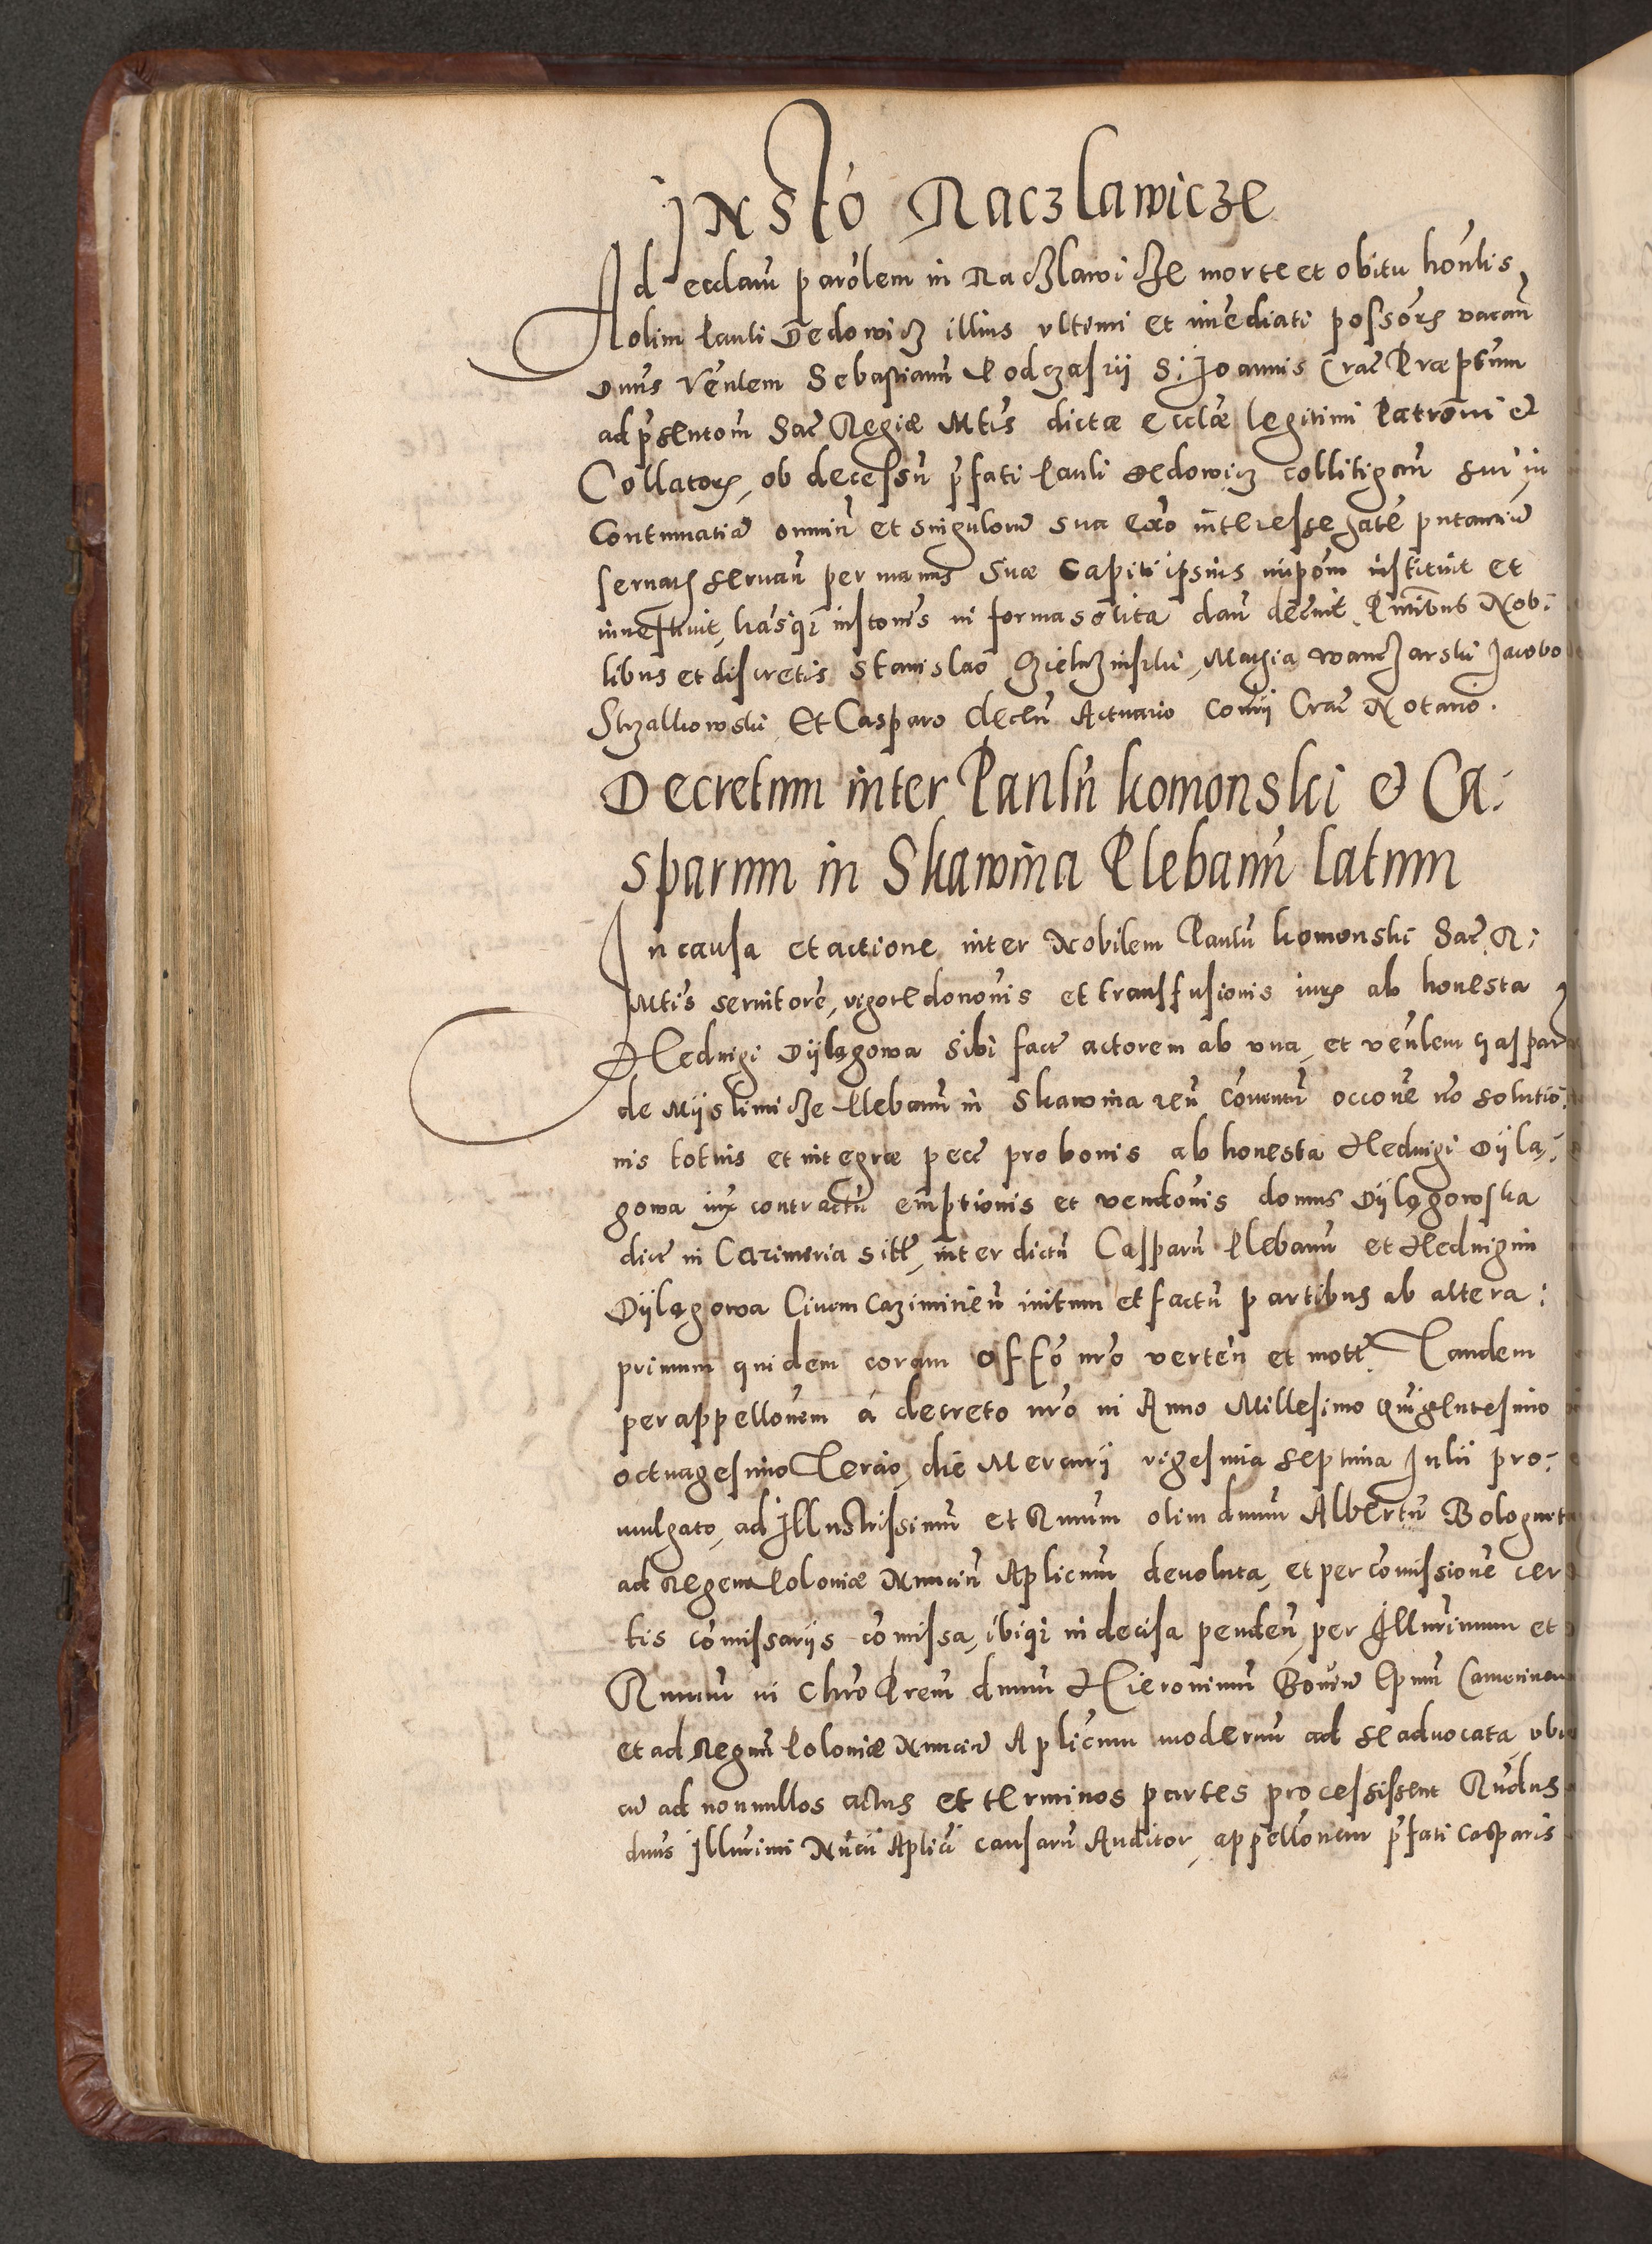 INstō Raczlawicze
Ad eccłam paro͞lem in Raczlawicze morte et obitu honłis
olim Pauli Dedowicz illius vltimi et im̄ediati poſsōrs vacan̄
Dnus Ven̄lem Sebaſtianū Podczaſzii S: Joannis Crac̄ Præptum
ad pn̄sentom̄ Sac̄ Regiæ Mtīs dictæ Eccłæ legitimi Patroni et
Collators, ob deceſsū pfati Pauli Dedowicz collitigan̄ sui, in
Contumatia omniū et singulorū sua eō interesse putantiū
servatis servan̄ per manus Suæ Capiti ipsius impōm instituit et
inveſtivit, hasqȝ instōnes in forma solita dan̄ decrevit. Pn̄tibus Nobi
libus et diſcretis Stanislao Zieluzinſzki, Mathia Wanczarski Jacobo
Strzalkowski Et Casparo Decen̄ Actuario Con̄rii Crac̄ Notario.
Decretum inter Paulū Komonski et Ca:
sparum in Skawina Plebanū latum
In cauſa et actione inter Nobilem Paulū Komonski Sac̄ R:
Mtīs servitorē, vigore donōnis et tranſfuſionis iurs ab honesta
Heduigi Dylągowa sibi fact̄ actorem ab vna, et ven̄lem Caſparū
de Myslimicze Plebanū in Skawina reū Conventū occōne nō solutio:
nis totius et integræ pec̄ pro bonis ab honesta Heduigi Dyla:
gowa iux̄ contractū emptionis et vendōnis domus Dylągowſka
dict̄ in Cazimiria sitt̄, inter dictū Caſparū Plebanū et Heduigim
Dylągowa Civem Cazimirien̄ initum et factū partibus ab altera:
primum quidem coram Offō nrō verten̄ et mott̄. Tandem
per appellōnem a decreto nrō in Anno Milleſimo Quigenteſimo
octuageſimo Tercio, die Mercurij vigeſima septima Julii pro:
mulgato, ad Illustriſsimū et Rmum olim dnum Albertū Bolognet
ad Regem Poloniæ Nunciū Aplicum devoluta, et per comiſsionē cer
tis comiſsariis comiſsa, ibiqȝ in deciſa penden̄, per Illumrimum et
Rmum in Chrō Prem dnum Hieronimū Boviū Epum Camerinen
et ad Regnū Poloniæ Nunciū Aplicum modernū ad se advocata, vbi
cū ad nonnullos actus et terminos partes proceſsiſsent Rndus
dnus Illumrimi Nuncii Aplici cauſarū Auditor, appellōnem pfati Casparis